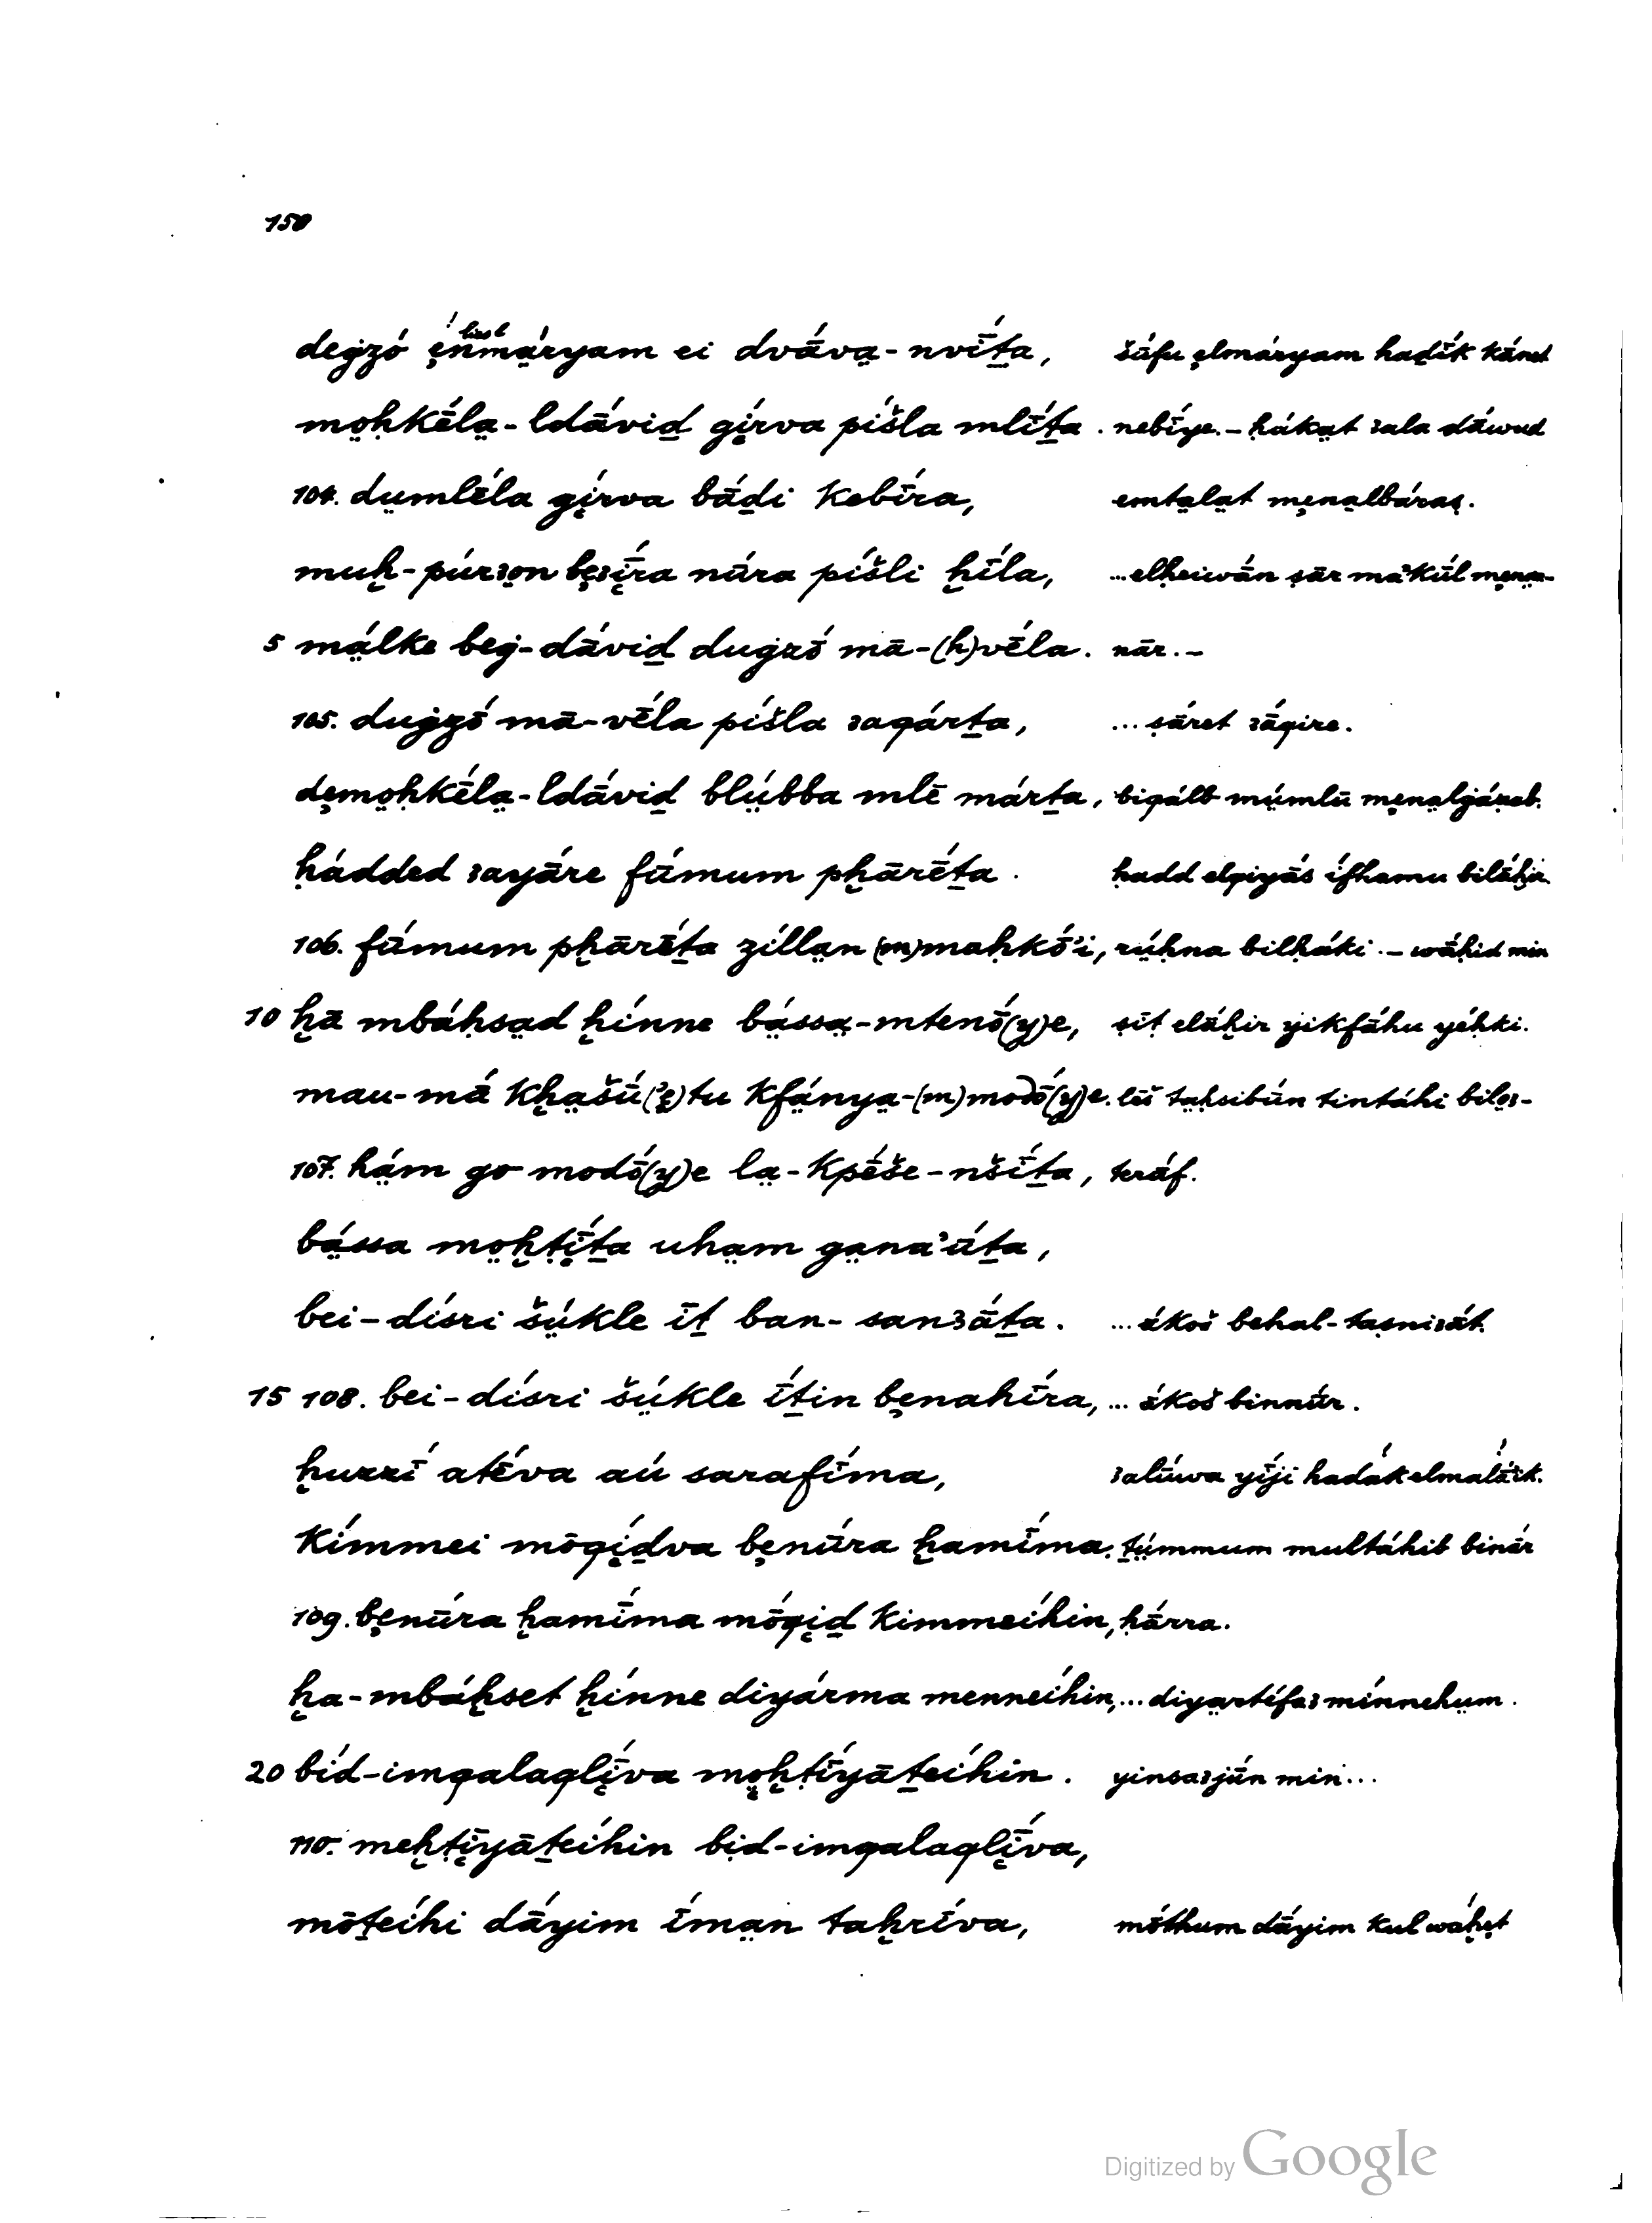 150
degzṓ ẹ́nmä́ryam ei dvā́va̤-nvī́ṯa, šūfu ẹlmáryam haḏīk kánet
mo̤ḥkḗla̤-ldā́viḏ gị́rva píšla mlī́ṯa. nebī́ye.- ḥáka̤t ʿala dāwud
104. dṳmlḗla gị́rva bā́ḏi kebī́ra, emta̤la̤t mẹna̤lbáraṣ.
muḫ-púrʿo̤n bẹʿī́ra nūra píšli ḫī́la, ...elḥeiwā́n ṣār maʾkū́l mẹna̤n-
5 mä́lke beġ-dā́viḏ dugzṓ mā-(h)vḗla. nār.-
105. duġzṓ mā-vḗla píšla ʿaqárṯa, ...ṣāret ʿā́qire.
dẹmo̤ḥkḗla̤-ldā́viḏ blṳ́bba mlē márṯa, biqálb mṳ́mlū mẹna̤lġáẓab.
ḥádded ʿayāre fū́mum pḫārḗṯa. ḥadd elqiyās ífhamu bilā́ḫir
106. fū́mum pḫārḗṯa zílla̤n (m)maḥkṓʾi, rṳ́ḥna bilḥáki.- wāḥid min
10 ḫā mbáḥsa̤d ḫínne bä́ssa̤-mtenṓ(y)e, ṣīṭ elāḫir yikfā́hu yéḥki.
mau-mā kḫa̤šū́(ʾẹ)tu kfä́nya̤-(m)modṓ(y)e. lēš ta̤ḥsibūn tintáhi bilo̤ʿ-
107. hä́m go modṓ(y)e la̤-kpḗše-nšī́ṯa, terā́f.
bä́ssa mo̤ḫṭī́ṯa uha̤m ga̤naʾū́ṯa,
bei-dísri šṳ́kle īṯ ban-sanʿā́ṯa. ...ákoš behal-taṣniʿāt.
15 108. bei-dísri šṳ́kle ī́ṯin bẹnahī́ra, ... ákoš binnūr.
ḫurrī́ atḗva aú sarafī́ma, ʿalúwa yíji hadák elmalā́ik.
kímmei mōqị́ḏva bẹnūra ḫamī́ma. ṯṳ́mmum multáhib binār
109. bẹnū́ra ḫamī́ma mṓqịḏ kimmeíhin, ḥárra.
ḫa-mbáḫset ḫínne diyárma menneíhin, ... diya̤rtéfaʿ mínnehṳm.
20 bíd-imqalaqlī́va mo̤ḫṭī́yāṯeíhin. yinsaʿjūn min...
110. meḫṭị̄yāṯeíhin bid-imqalaqlī́va,
mōṯeíhi dā́yim ī́ma̤n taḫrī́va, móthum dáyim kul wáḥẹt
Digitized by Google